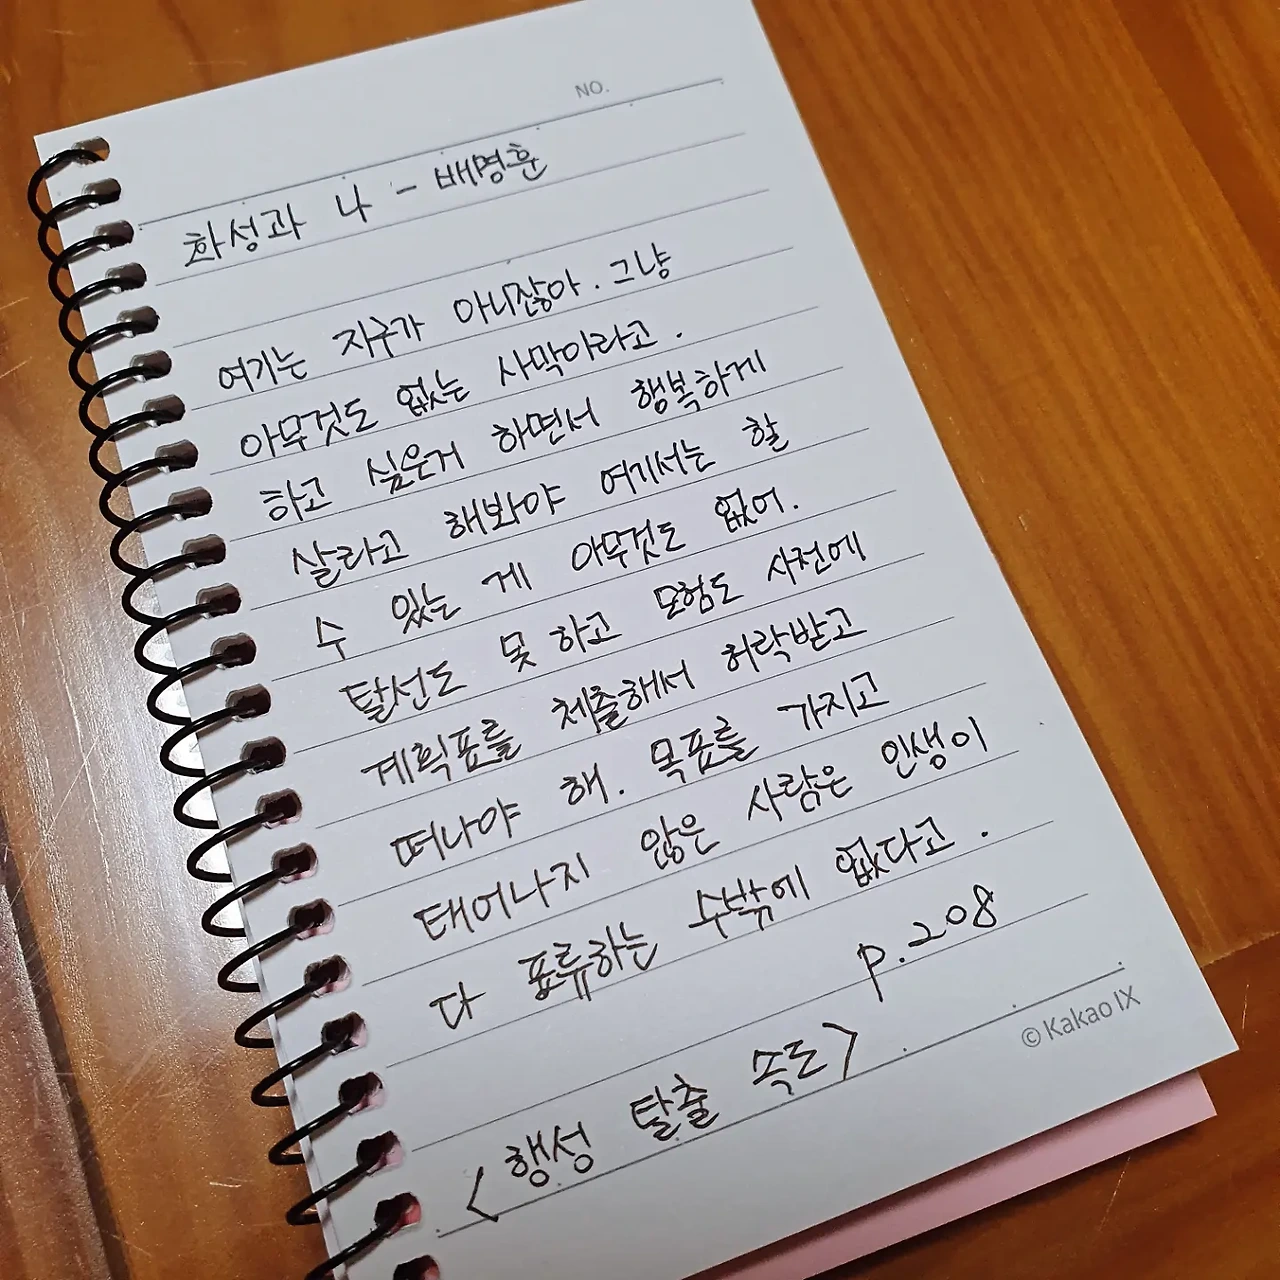 NO.
화성과 나 - 배명훈
여기는 지구가 아니잖아. 그냥
아무것도 없는 사막이라고.
하고 싶은거 하면서 행복하게
살라고 해봐야 여기서는 할
수 있는 게 아무것도 없어.
탈선도 못 하고 모험도 사전에
계획표를 제출해서 허락받고
떠나야 해. 목표를 가지고
태어나지 않은 사람은 인생이
다 표류하는 수밖에 없다고.
p.208
<행성 탈출 속도>
© Kakao IX